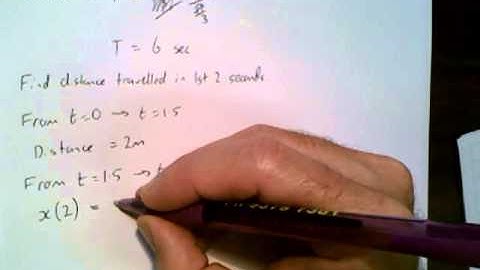 T = 6 sec
Find distance travelled in 1st 2 seconds.
From t=0 → t=1.5
Distance = 2m
From t=1.5 →
x(2) =